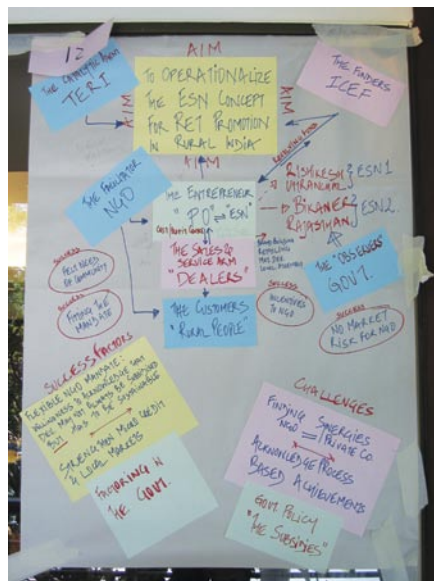 12
AIM
THE CATALYTIC AGENT
TERI
AIM
TO OPERATIONALIZE
THE ESN CONCEPT
FOR RET PROMOTION
IN RURAL INDIA
AIM
AIM
THE FUNDERS
ICEF
THE FACILITATOR
NGO
REVOLVING FUND
THE ENTREPRENEUR
"PO" "ESN"
RISHIKESH
UTTRANCHAL
ESN1
BIKANER
RAJASTHAN
ESN2.
THE SALES &
SERVICE ARM
"DEALERS"
THE "OBSERVERS"
GOVT.
THE CUSTOMERS
"RURAL PEOPLE"
SUCCESS
FELT NEED
OF COMMUNITY
SUCCESS
FITTING THE
MANDATE
SUCCESS
INCENTIVES
TO NGO
SUCCESS
NO MARKET
RISK FOR NGO
SUCCESS FACTORS
FLEXIBLE NGO MANDATE:
WILLINGNESS TO ACKNOWLEDGE THAT
DEC MAY NOT ALWAYS BE SUBSIDISED
BUT HAS TO BE SUSTAINABLE
STRENGTHEN MICRO CREDIT
& LOCAL MARKETS
FACTORING IN
THE GOVT.
CHALLENGES
FINDING SYNERGIES
NGO = PRIVATE CO.
ACKNOWLEDGE PROCESS
BASED ACHIEVEMENTS
GOVT. POLICY
"THE SUBSIDIES"